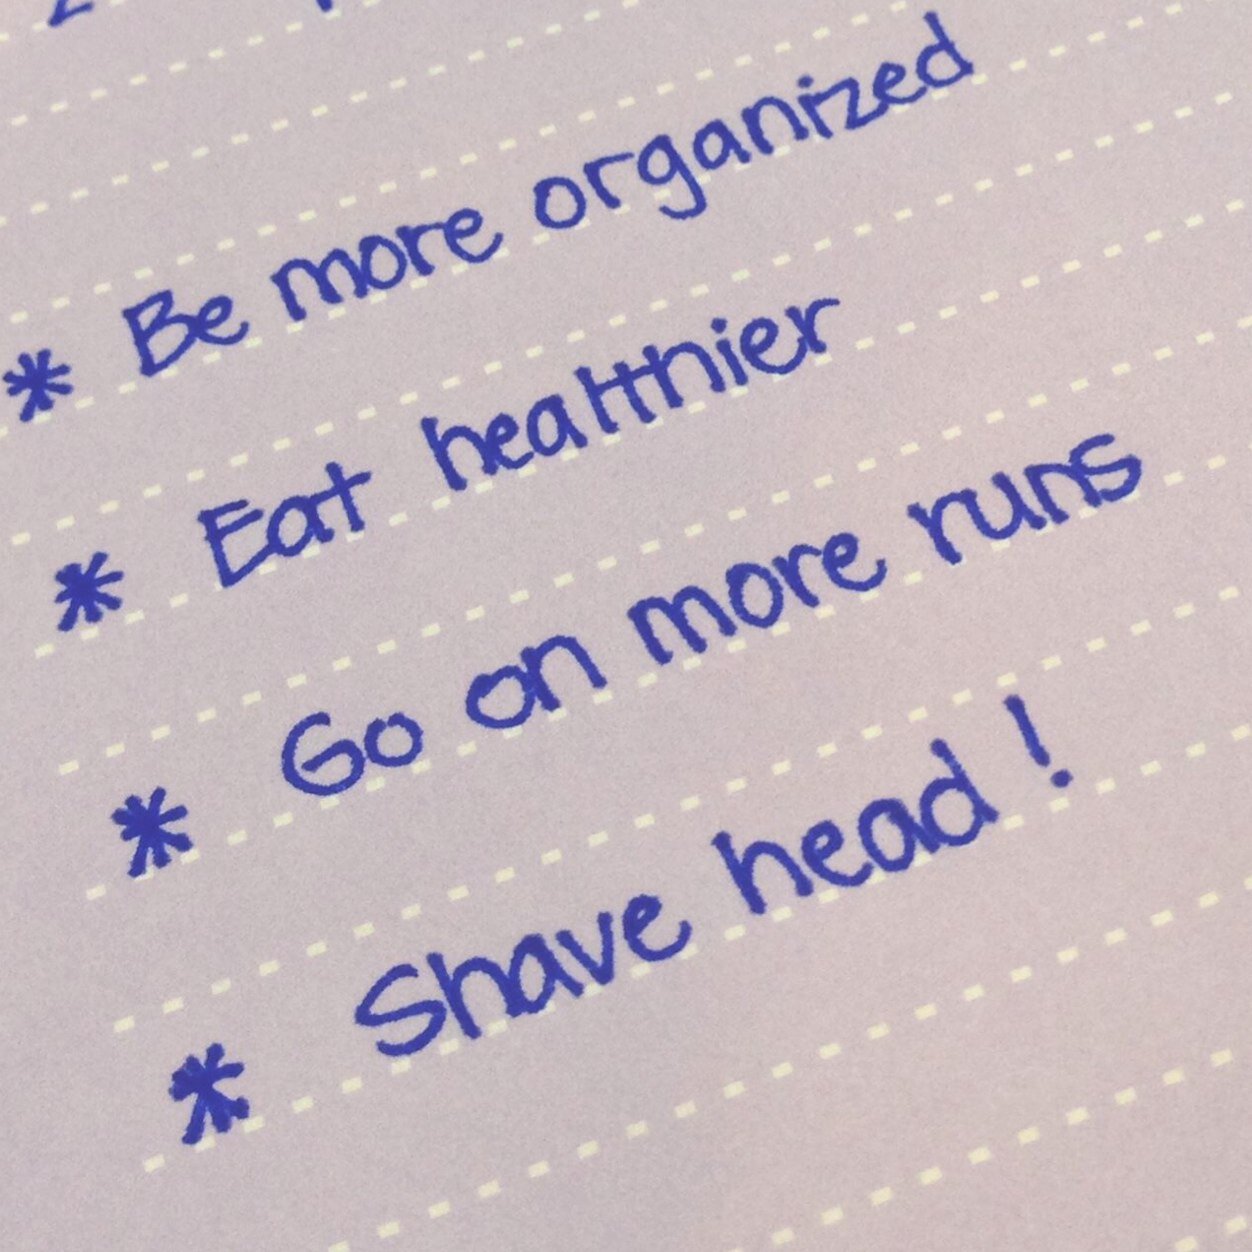 * Be more organized
* Eat healthier
* Go on more runs
* Shave head!